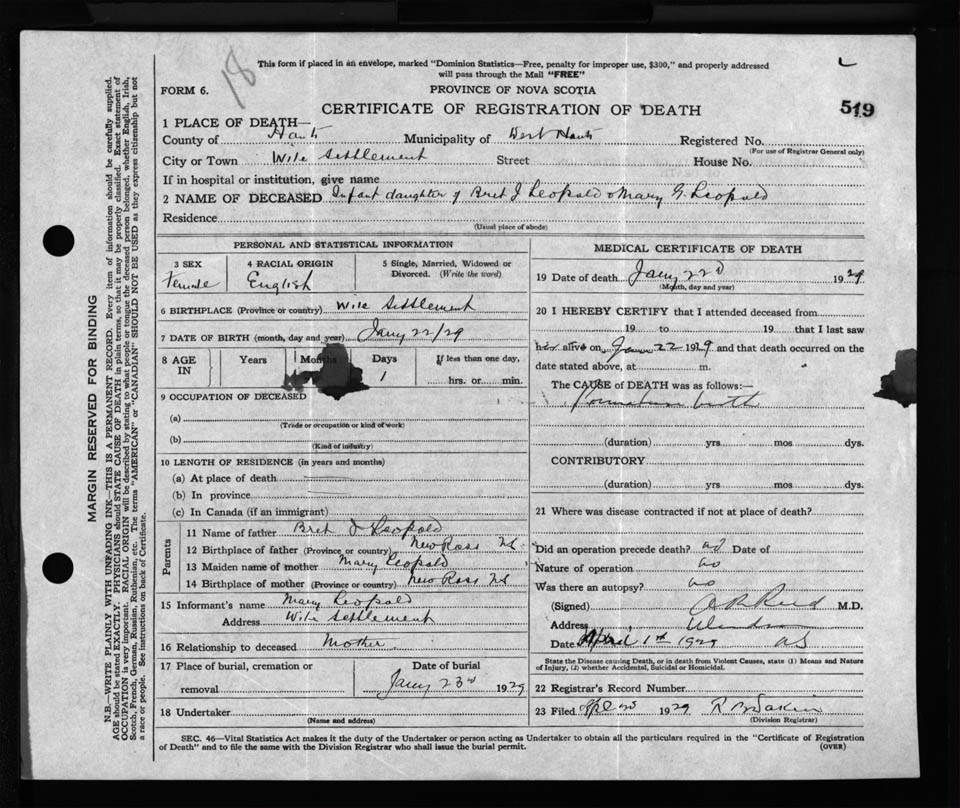 18
This form if placed in an envelope, marked "Dominion Statistics—Free, penalty for improper use, $300," and properly addressed
will pass through the Mail "FREE"
FORM 6.
PROVINCE OF NOVA SCOTIA
CERTIFICATE OF REGISTRATION OF DEATH
519
1 PLACE OF DEATH—
County of Hants Municipality of West Hants Registered No.
(For use of Registrar General only)
City or Town Wile Settlement Street House No.
If in hospital or institution, give name
2 NAME OF DECEASED Infant daughter of Bret J Leopold & Mary G. Leopold
Residence
(Usual place of abode)
PERSONAL AND STATISTICAL INFORMATION
3 SEX 4 RACIAL ORIGIN 5 Single, Married, Widowed or
Divorced. (Write the word)
Female English
6 BIRTHPLACE (Province or country) Wile Settlement
7 DATE OF BIRTH (month, day and year) Jany 22/29
8 AGE IN Years Months Days If less than one day,
1 hrs. or min.
9 OCCUPATION OF DECEASED
(a)
(Trade or occupation or kind of work)
(b)
(Kind of industry)
10 LENGTH OF RESIDENCE (in years and months)
(a) At place of death
(b) In province
(c) In Canada (if an immigrant)
Parents
11 Name of father Bret J Leopold
12 Birthplace of father (Province or country) New Ross NS
13 Maiden name of mother Mary Leopold
14 Birthplace of mother (Province or country) New Ross NS
15 Informant's name Mary Leopold
Address Wile Settlement
16 Relationship to deceased Mother
17 Place of burial, cremation or Date of burial
removal Jany 23rd 1929
18 Undertaker
(Name and address)
MEDICAL CERTIFICATE OF DEATH
19 Date of death Jany 22d 1929
(Month, day and year)
20 I HEREBY CERTIFY that I attended deceased from
19 to 19 that I last saw
alive on Jan 22 1929 and that death occurred on the
date stated above, at m.
The CAUSE OF DEATH was as follows:—
Premature birth
(duration) yrs mos dys.
CONTRIBUTORY
(duration) yrs. mos. dys.
21 Where was disease contracted if not at place of death?
Did an operation precede death? no Date of
Nature of operation no
Was there an autopsy? no
(Signed) Reid M.D.
Address Windsor
Date April 1st 1929
State the Disease causing Death, or in death from Violent Causes, state (1) Means and Nature
of Injury, (2) whether Accidental, Suicidal or Homicidal.
22 Registrar's Record Number
23 Filed 1929
(Division Registrar)
SEC. 46—Vital Statistics Act makes it the duty of the Undertaker or person acting as Undertaker to obtain all the particulars required in the "Certificate of Registration
of Death" and to file the same with the Division Registrar who shall issue the burial permit.
(OVER)
MARGIN RESERVED FOR BINDING
N.B.—WRITE PLAINLY WITH UNFADING INK—THIS IS A PERMANENT RECORD. Every item of information should be carefully supplied.
AGE should be stated EXACTLY. PHYSICIANS should STATE CAUSE OF DEATH in plain terms, so that it may be properly classified. Exact statement of
OCCUPATION is very important. RACIAL ORIGIN will be described by stating to what people or tongue the deceased person belonged, whether English, Irish,
Scotch, French, German, Russian, Ruthenian, etc. The terms "AMERICAN" or "CANADIAN" SHOULD NOT BE USED as they express citizenship but not
a race or people. See instructions on back of Certificate.